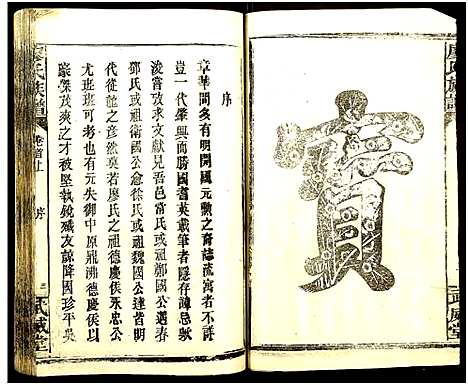 廖氏族譜
寶
武威堂
序
章華間多有明開國元勳之裔誌流寓者不詳
豈一代肇興而勝國耆英載筆者隱存滄桑
後嘗求文獻見吾邑常氏或祖鄭國公遇春
鄧氏或祖衛國公愈徐氏或祖魏國公達皆明
代從龍之彥然莫若廖氏之祖德慶侯永忠公
尤班班可考也有元失御中原鼎沸德慶侯以
豪傑茂爽之才被堅執銳殲友諒降國珍平吳
廖氏族譜
卷首上
序
武威堂